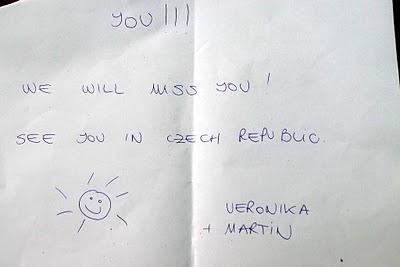 YOU!!!
WE WILL MISS YOU!
SEE YOU IN CZECH REPUBLIC.
VERONIKA
+ MARTIN